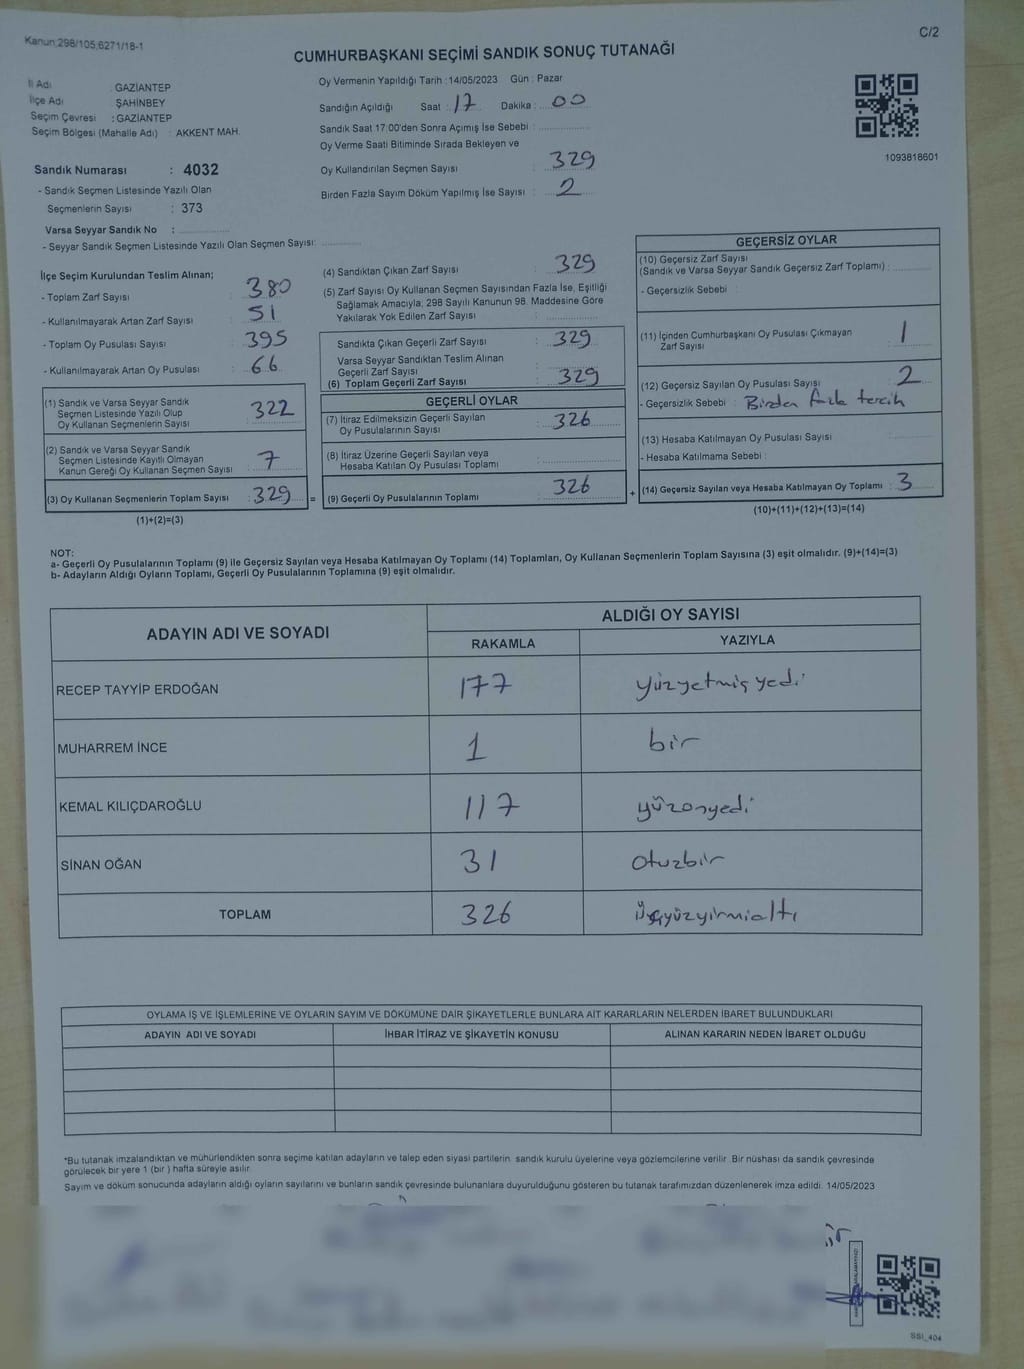 Kanun;298/105;6271/18-1
C/2
CUMHURBAŞKANI SEÇİMİ SANDIK SONUÇ TUTANAĞI
İl Adı : GAZİANTEP
İlçe Adı : ŞAHİNBEY
Seçim Çevresi : GAZİANTEP
Seçim Bölgesi (Mahalle Adı) : AKKENT MAH.
Oy Vermenin Yapıldığı Tarih : 14/05/2023 Gün : Pazar
Sandığın Açıldığı Saat : 17 Dakika : 00
Sandık Saat 17:00'den Sonra Açımış İse Sebebi :
Oy Verme Saati Bitiminde Sırada Bekleyen ve
Oy Kullandırılan Seçmen Sayısı : 329
Birden Fazla Sayım Döküm Yapılmış İse Sayısı : 2
1093818601
Sandık Numarası : 4032
- Sandık Seçmen Listesinde Yazılı Olan
Seçmenlerin Sayısı : 373
Varsa Seyyar Sandık No :
- Seyyar Sandık Seçmen Listesinde Yazılı Olan Seçmen Sayısı:
İlçe Seçim Kurulundan Teslim Alınan;
- Toplam Zarf Sayısı : 380
- Kullanılmayarak Artan Zarf Sayısı : 51
- Toplam Oy Pusulası Sayısı : 395
- Kullanılmayarak Artan Oy Pusulası : 66
(1) Sandık ve Varsa Seyyar Sandık
Seçmen Listesinde Yazılı Olup
Oy Kullanan Seçmenlerin Sayısı : 322
(2) Sandık ve Varsa Seyyar Sandık
Seçmen Listesinde Kayıtlı Olmayan
Kanun Gereği Oy Kullanan Seçmen Sayısı : 7
(3) Oy Kullanan Seçmenlerin Toplam Sayısı : 329
(1)+(2)=(3)
(4) Sandıktan Çıkan Zarf Sayısı : 329
(5) Zarf Sayısı Oy Kullanan Seçmen Sayısından Fazla İse, Eşitliği
Sağlamak Amacıyla; 298 Sayılı Kanunun 98. Maddesine Göre
Yakılarak Yok Edilen Zarf Sayısı :
Sandıkta Çıkan Geçerli Zarf Sayısı : 329
Varsa Seyyar Sandıktan Teslim Alınan
Geçerli Zarf Sayısı :
(6) Toplam Geçerli Zarf Sayısı : 329
GEÇERLİ OYLAR
(7) İtiraz Edilmeksizin Geçerli Sayılan
Oy Pusulalarının Sayısı : 326
(8) İtiraz Üzerine Geçerli Sayılan veya
Hesaba Katılan Oy Pusulası Toplamı :
= (9) Geçerli Oy Pusulalarının Toplamı : 326
GEÇERSİZ OYLAR
(10) Geçersiz Zarf Sayısı
(Sandık ve Varsa Seyyar Sandık Geçersiz Zarf Toplamı) :
- Geçersizlik Sebebi :
(11) İçinden Cumhurbaşkanı Oy Pusulası Çıkmayan
Zarf Sayısı : 1
(12) Geçersiz Sayılan Oy Pusulası Sayısı : 2
- Geçersizlik Sebebi : Birden fazla tercih
(13) Hesaba Katılmayan Oy Pusulası Sayısı :
- Hesaba Katılmama Sebebi :
+ (14) Geçersiz Sayılan veya Hesaba Katılmayan Oy Toplamı : 3
(10)+(11)+(12)+(13)=(14)
NOT:
a- Geçerli Oy Pusulalarının Toplamı (9) ile Geçersiz Sayılan veya Hesaba Katılmayan Oy Toplamı (14) Toplamları, Oy Kullanan Seçmenlerin Toplam Sayısına (3) eşit olmalıdır. (9)+(14)=(3)
b- Adayların Aldığı Oyların Toplamı, Geçerli Oy Pusulalarının Toplamına (9) eşit olmalıdır.
ADAYIN ADI VE SOYADI
ALDIĞI OY SAYISI
RAKAMLA YAZIYLA
RECEP TAYYİP ERDOĞAN 177 yüzyetmişyedi
MUHARREM İNCE 1 bir
KEMAL KILIÇDAROĞLU 117 yüzonyedi
SİNAN OĞAN 31 otuzbir
TOPLAM 326 üçyüzyirmialtı
OYLAMA İŞ VE İŞLEMLERİNE VE OYLARIN SAYIM VE DÖKÜMÜNE DAİR ŞİKAYETLERLE BUNLARA AİT KARARLARIN NELERDEN İBARET BULUNDUKLARI
ADAYIN ADI VE SOYADI İHBAR İTİRAZ VE ŞİKAYETİN KONUSU ALINAN KARARIN NEDEN İBARET OLDUĞU
*Bu tutanak imzalandıktan ve mühürlendikten sonra seçime katılan adayların ve talep eden siyasi partilerin sandık kurulu üyelerine veya gözlemcilerine verilir. Bir nüshası da sandık çevresinde
görülecek bir yere 1 (bir ) hafta süreyle asılır.
Sayım ve döküm sonucunda adayların aldığı oyların sayılarını ve bunların sandık çevresinde bulunanlara duyurulduğunu gösteren bu tutanak tarafımızdan düzenlenerek imza edildi. 14/05/2023
SSI_404